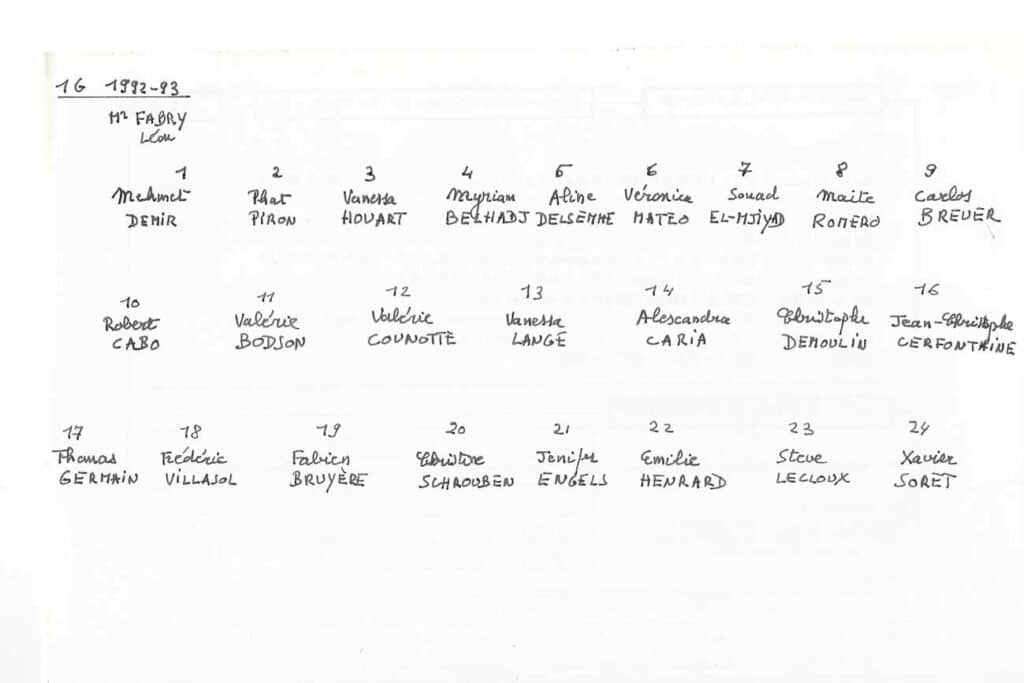 1G 1992-93
Mr FABRY
Léon
1 2 3 4 5 6 7 8 9
Mehmet Phat Vanessa Myriam Aline Véronica Souad Maite Carlos
DEMIR PIRON HOUART BELHADJ DELSEMME MATEO EL-MJIYAD ROMERO BREUER
10 11 12 13 14 15 16
Robert Valérie Valérie Vanessa Alescandra Christophe Jean-Christophe
CABO BODSON COUNOTTE LANGE CARIA DEMOULIN CERFONTAINE
17 18 19 20 21 22 23 24
Thomas Frédéric Fabien Christine Jenifer Emilie Steve Xavier
GERMAIN VILLASOL BRUYÈRE SCHROUBEN ENGELS HENRARD LECLOUX SORET